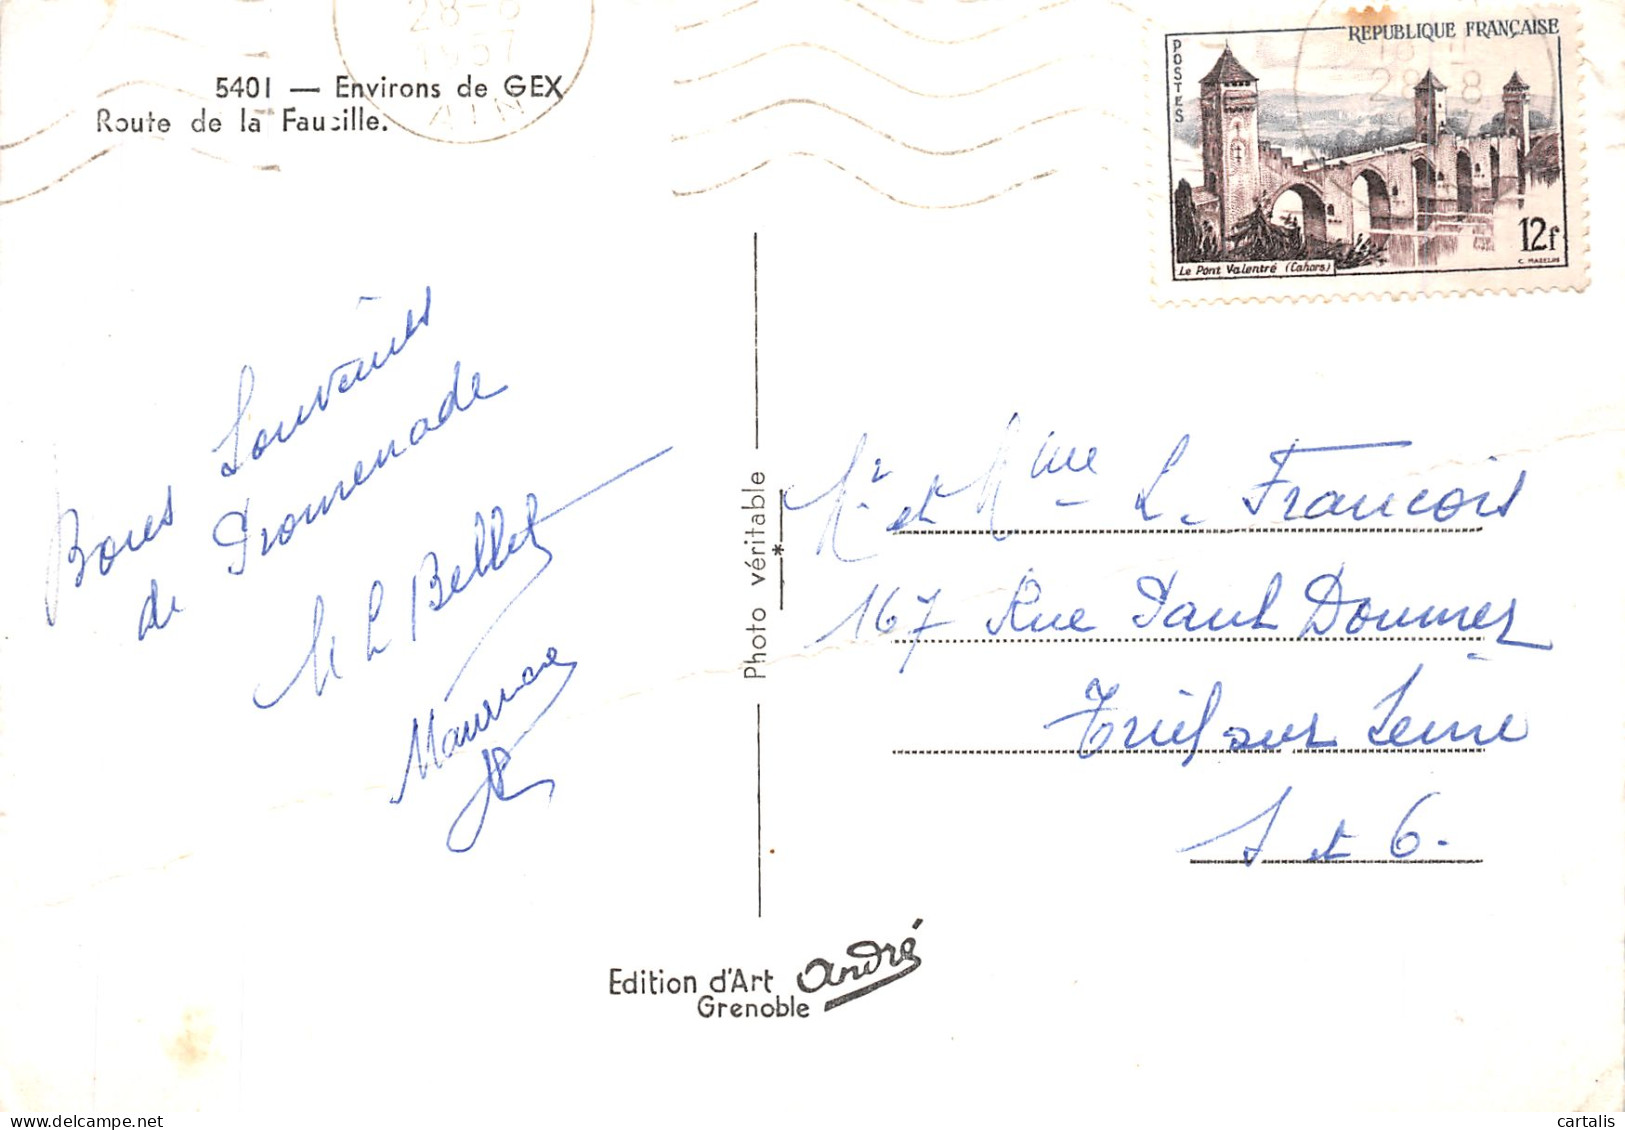 28-8
1957
AIN
5401 — Environs de GEX
Route de la Faucille.
REPUBLIQUE FRANÇAISE
POSTES
28-8
12f
Le Pont Valentré (Cahors)
C. MAZELIN
Bones Souvenirs
de Promenade
M L Bellet
Maurice
Photo véritable
*
Mr et Mme L. Francois
167 Rue Paul Doumer
Triel sur Seine
S et O.
Edition d'Art André
Grenoble
cartalis